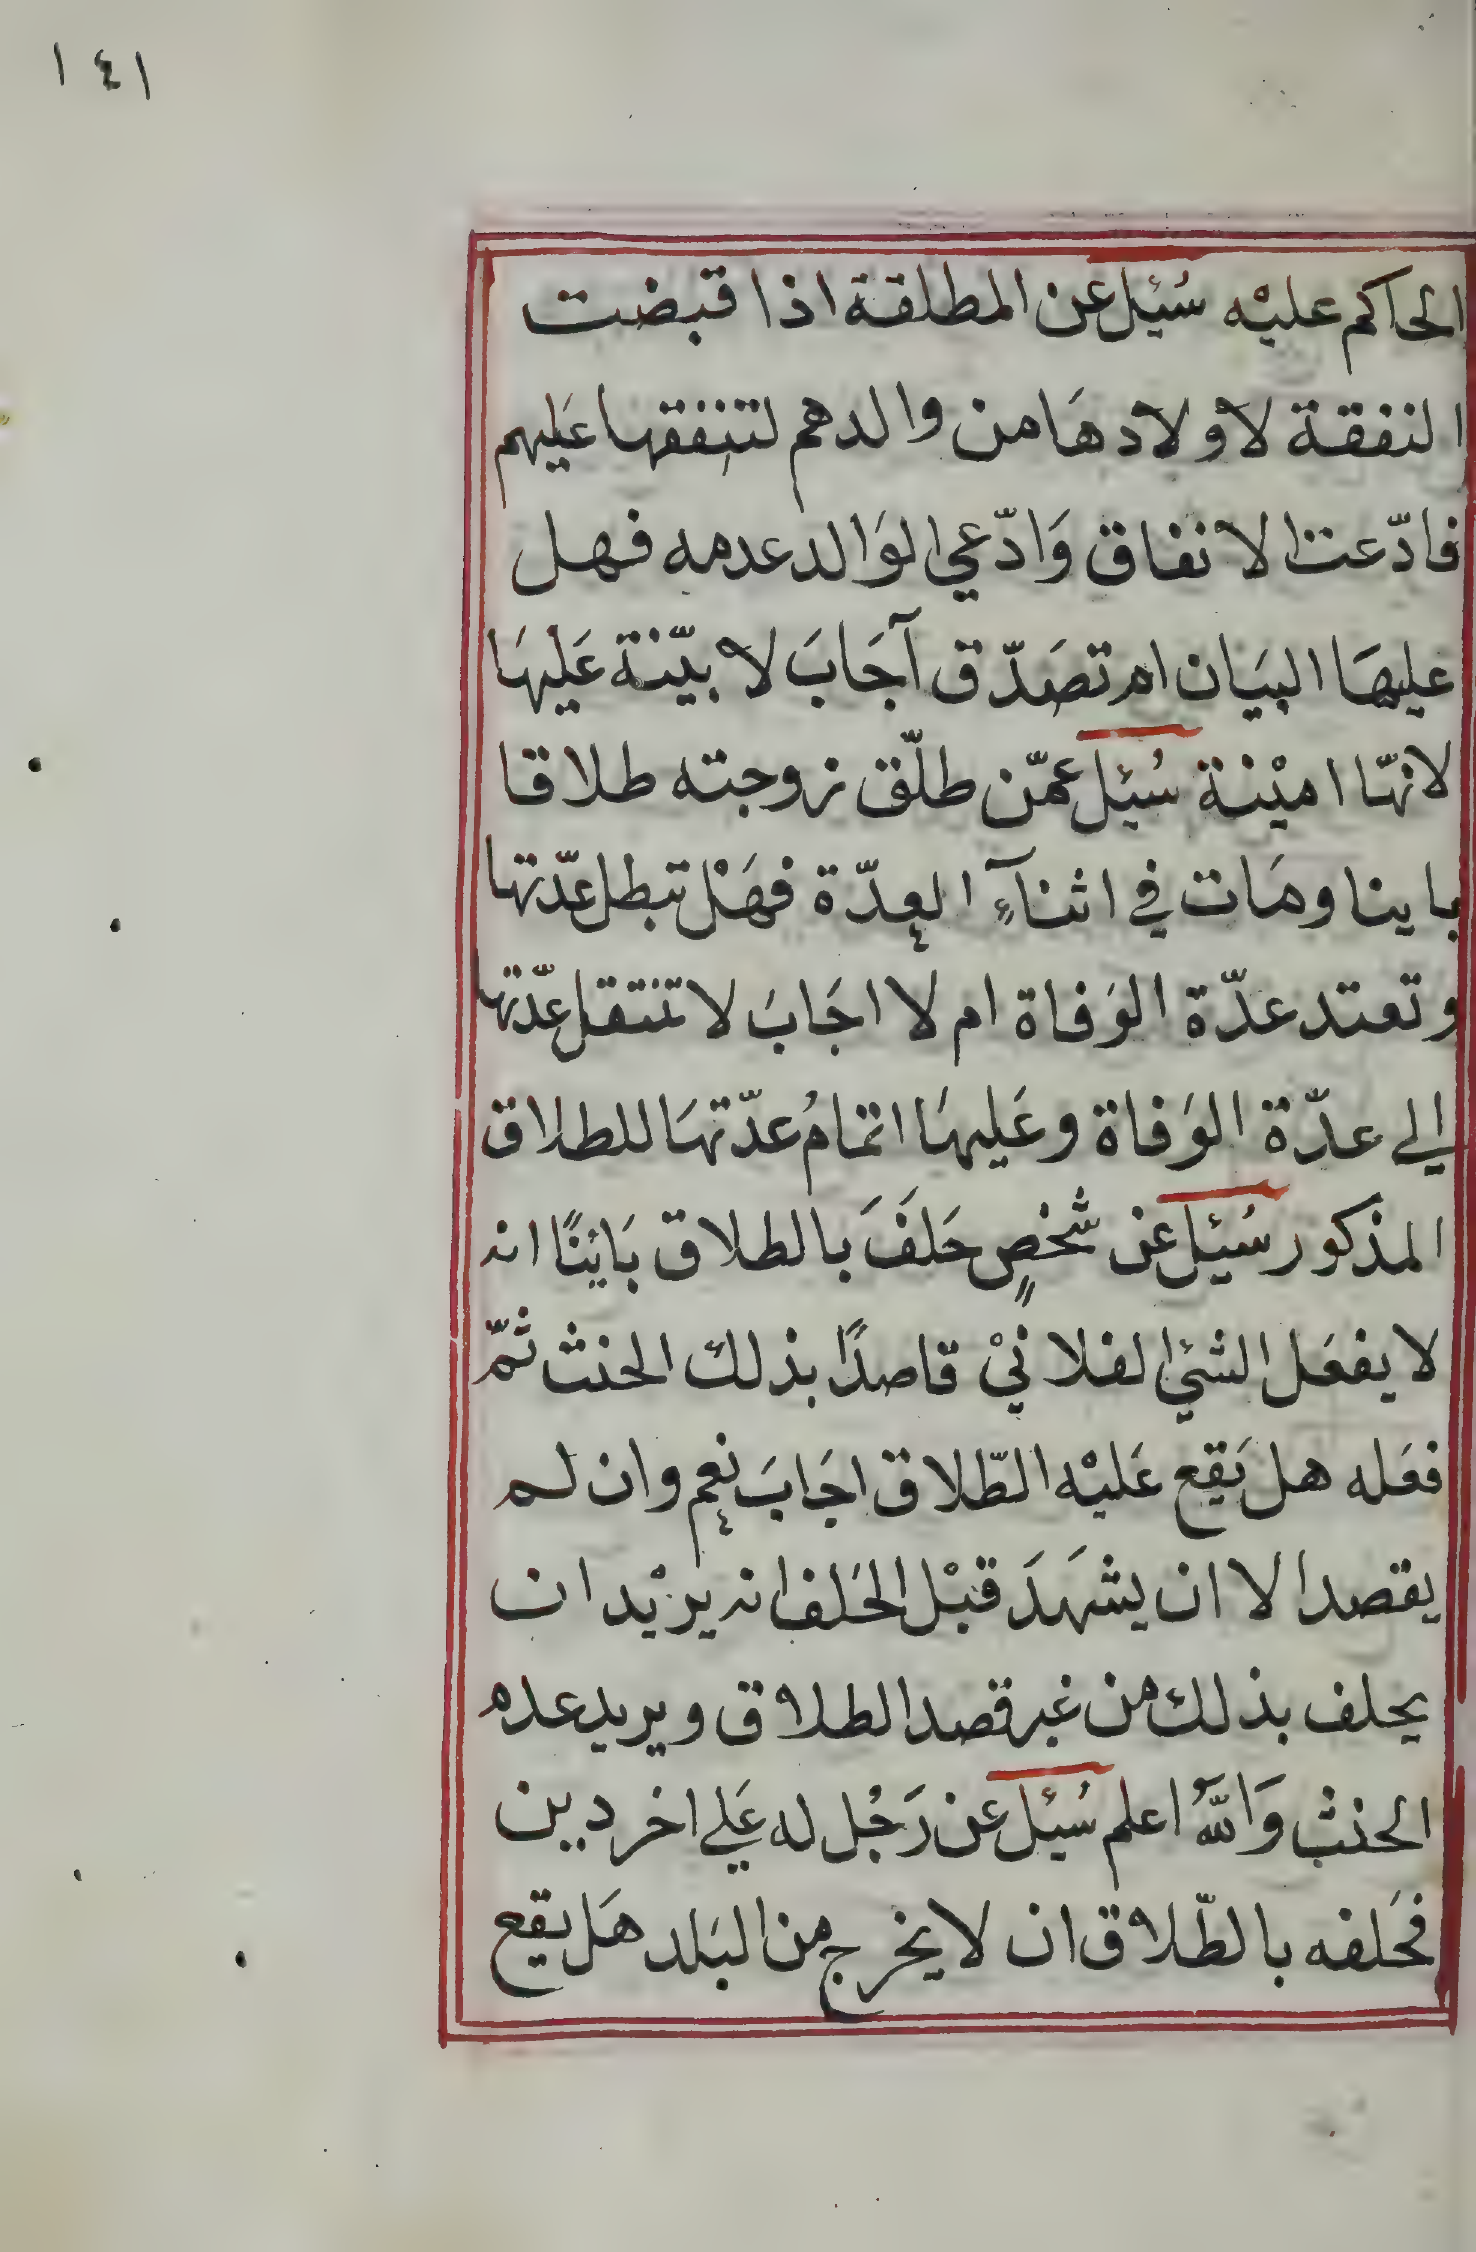 ١٤١
الحاكم عليْه سُئِل عن المطلقة اذا قبضت
النفقة لاولادهَا من والدهم لتنفقها عَليهم
فادّعت الانفاق وَادّعي الوَالد عدمه فهل
عليهَا البيَان ام تصَدّق آجَابَ لا بيّنة عَليهَا
لانهّا اميْنة سُئِل عمّن طلّق زوجته طلاقا
باينا ومَات في اثنآءِ العِدّة فهَلْ تبطل عدّتها
وتعتد عدّة الوَفاة ام لا اجَابَ لا تنتقل عدّتها
الي عدّة الوَفاة وعَليهَا اتمامُ عدّتهَا للطلاق
المذكور سُئِل عن شخصٍ حَلَفَ بالطلاق بَائِنًا انه
لا يفعَل الشئ الفلانيْ قاصدًا بذلك الحنث ثمّ
فعَله هل يَقع عَليْه الطّلاق اجَابَ نعِم وان لم
يقصد الا ان يشهَدَ قبْل الحَلف انه يريْد ان
يحلف بذلك من غير قصد الطلاق ويريد عدم
الحنث وَاللّهُ اعلم سُئِل عن رَجُل له عَلي اخر دين
فحَلفه بالطّلاق ان لا يخرج من البَلد هَل يقع